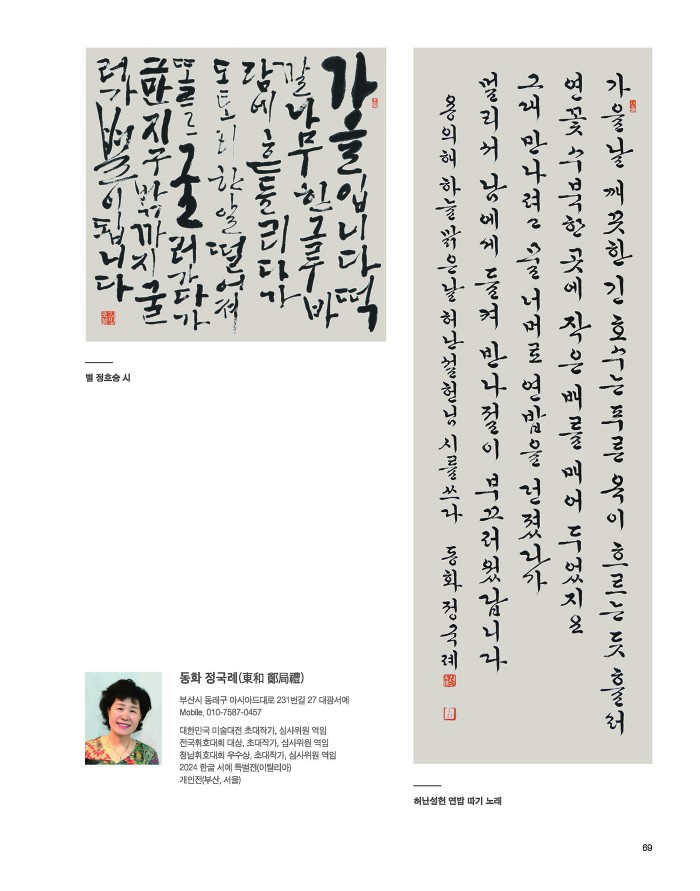 가을입니다떡
갈나무한그루바
람에흔들리다가
도토리한알떨어져
또르르굴러가다가
그만지구밖까지굴
러가별이됩니다
별 정호승 시
가을날 깨끗한 긴 호수는 푸른 옥이 흐르는 듯 흘러
연꽃 수북한 곳에 작은 배를 매어 두었지요
그대 만나려고 물 너머로 연밥을 던졌다가
멀리서 남에게 들켜 반나절이 부끄러웠답니다
용의해 하늘 맑은날 허난설헌님 시를쓰다 동화 정국례
허난설헌 연밥 따기 노래
동화 정국례(東和 鄭局禮)
부산시 동래구 아시아드대로 231번길 27 대광서예
Mobile. 010-7587-0457
대한민국 미술대전 초대작가, 심사위원 역임
전국휘호대회 대상, 초대작가, 심사위원 역임
청남휘호대회 우수상, 초대작가, 심사위원 역임
2024 한글 서예 특별전(이탈리아)
개인전(부산, 서울)
69